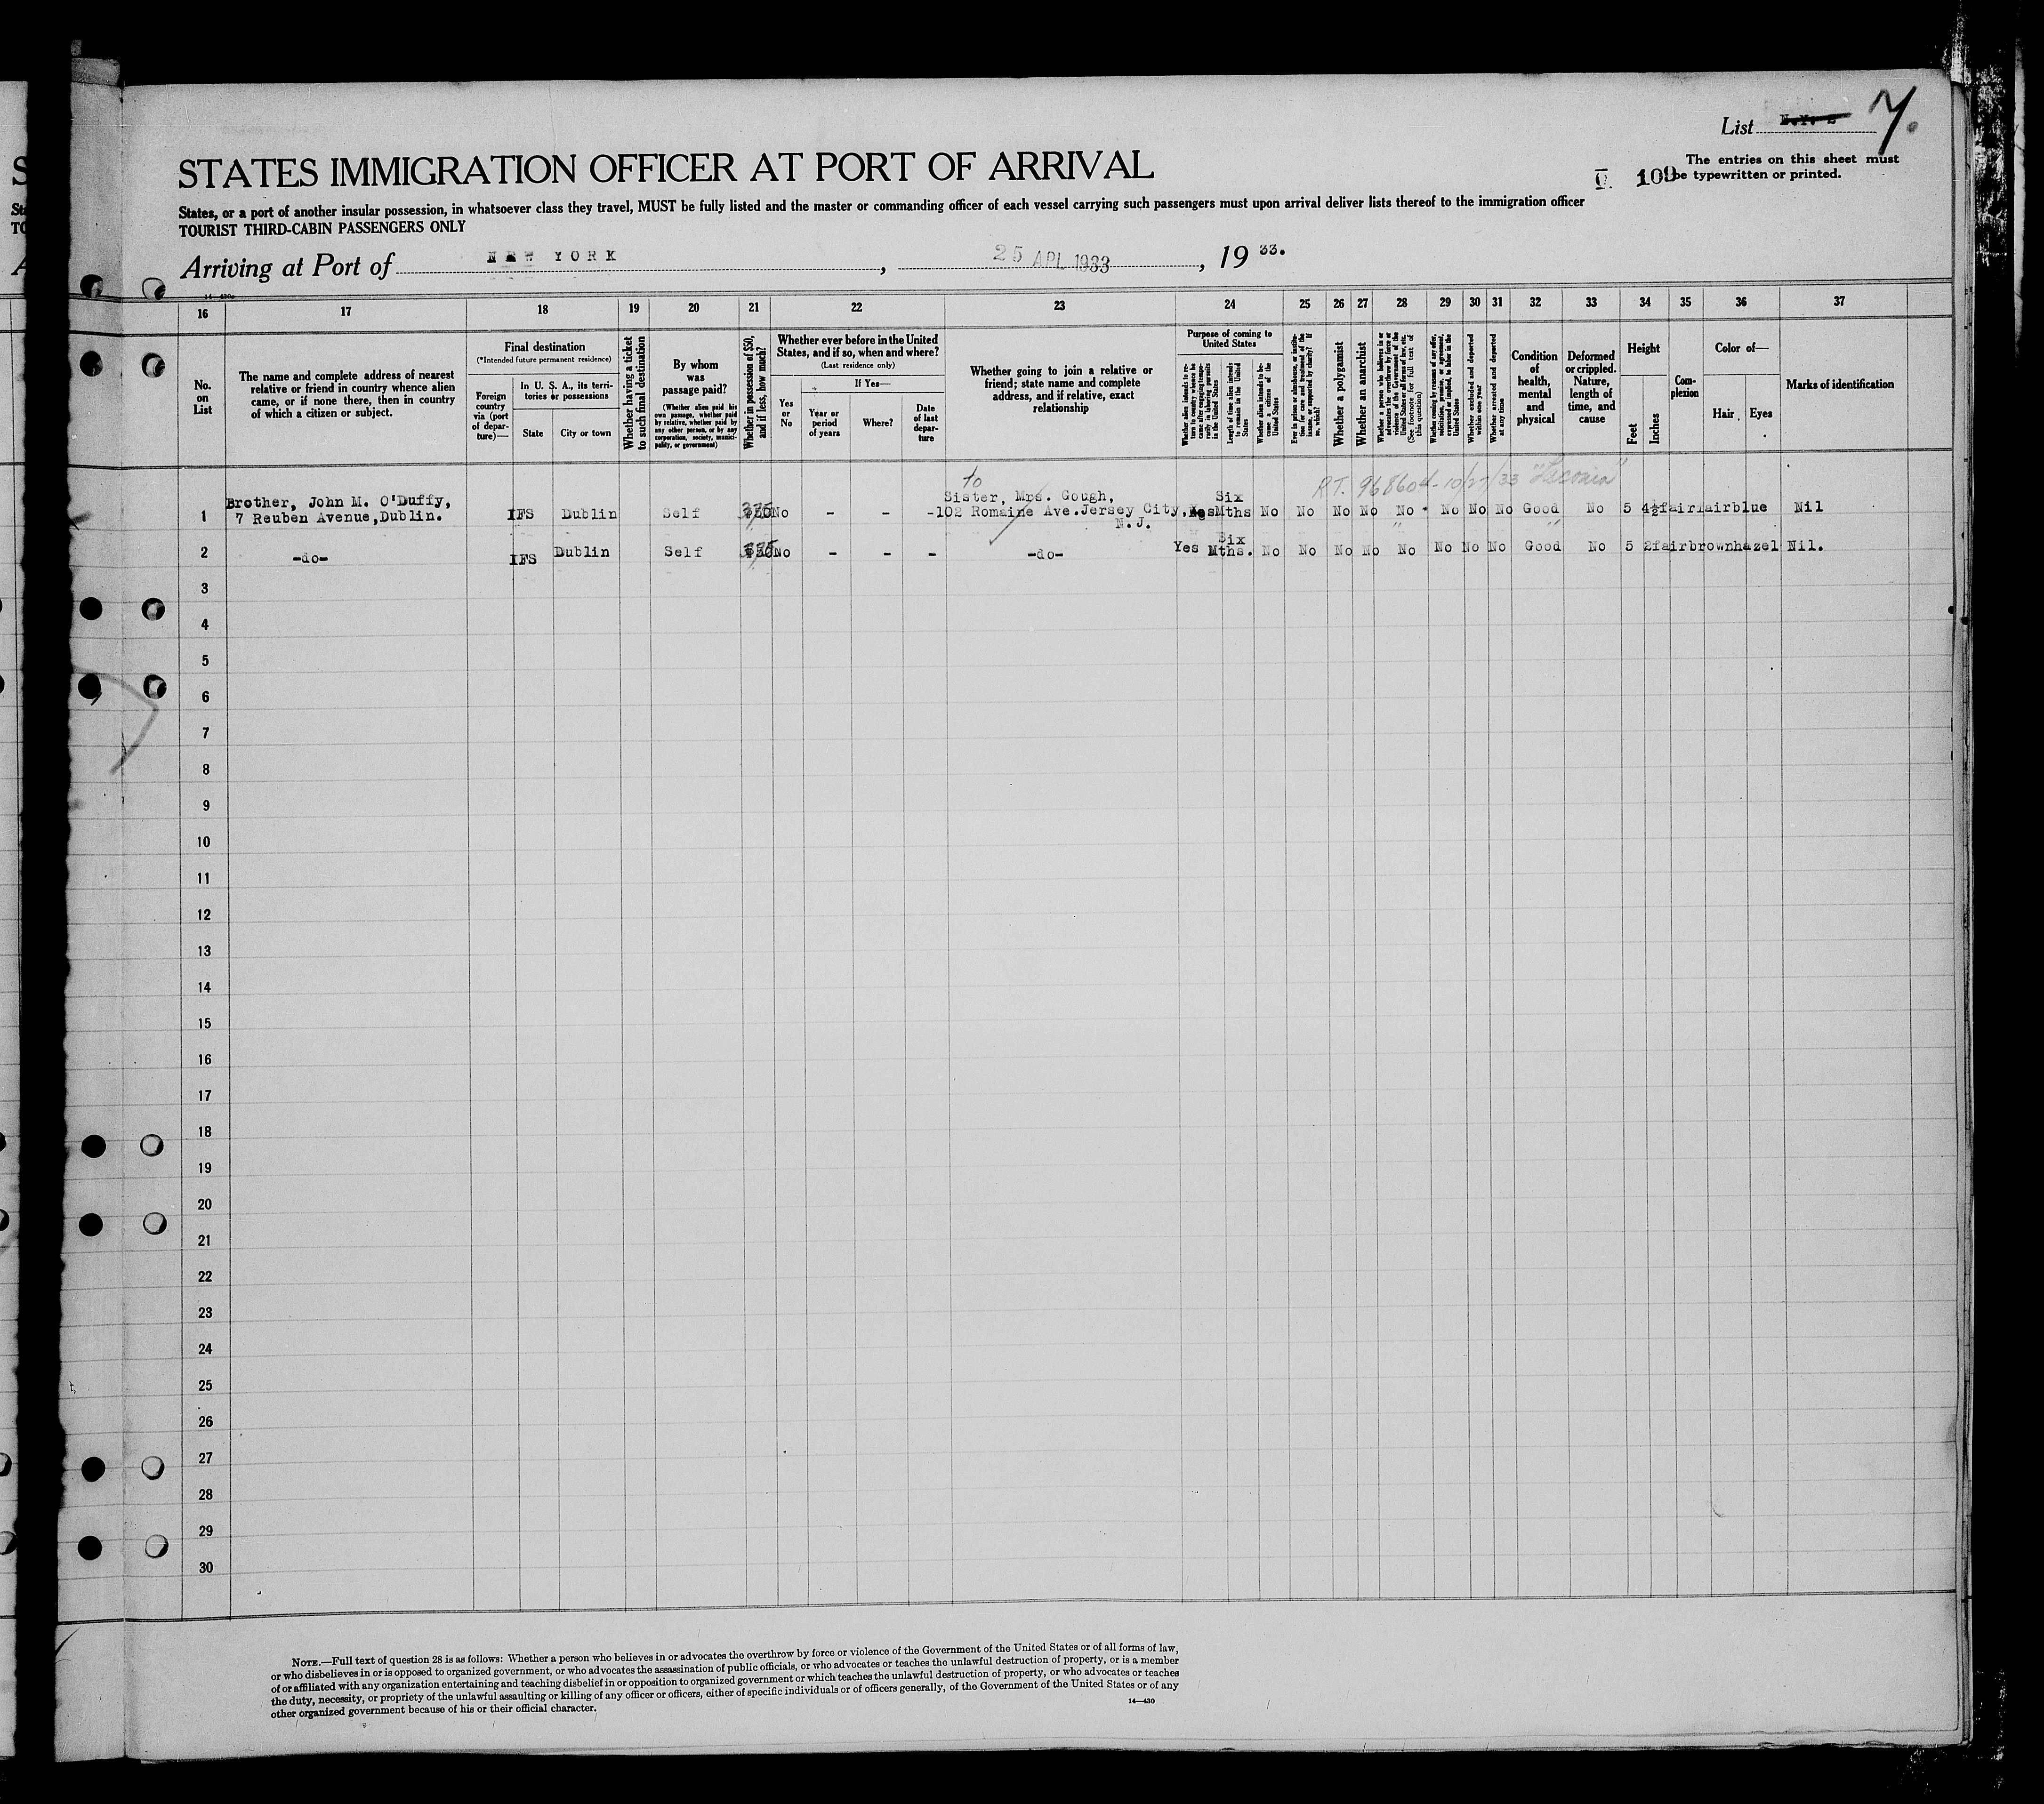 List 7.
The entries on this sheet must
be typewritten or printed.
109
STATES IMMIGRATION OFFICER AT PORT OF ARRIVAL
States, or a port of another insular possession, in whatsoever class they travel, MUST be fully listed and the master or commanding officer of each vessel carrying such passengers must upon arrival deliver lists thereof to the immigration officer
TOURIST THIRD-CABIN PASSENGERS ONLY
Arriving at Port of NEW YORK, 25 APL 1933, 19 33.
16 17 18 19 20 21 22 23 24 25 26 27 28 29 30 31 32 33 34 35 36 37
No.
on
List
The name and complete address of nearest
relative or friend in country whence alien
came, or if none there, then in country
of which a citizen or subject.
Final destination
(*Intended future permanent residence)
Foreign
country
via (port
of depar-
ture)—
In U. S. A., its terri-
tories or possessions
State
City or town
Whether having a ticket
to such final destination
By whom
was
passage paid?
(Whether alien paid his
own passage, whether paid
by relative, whether paid by
any other person, or by any
corporation, society, munici-
pality, or government)
Whether in possession of $50,
and if less, how much?
Whether ever before in the United
States, and if so, when and where?
(Last residence only)
Yes
or
No
If Yes—
Year or
period
of years
Where?
Date
of last
depar-
ture
Whether going to join a relative or
friend; state name and complete
address, and if relative, exact
relationship
Purpose of coming to
United States
Whether alien intends to re-
turn to country whence he
came after engaging tempo-
rarily in laboring pursuits
in the United States
Length of time alien intends
to remain in the United
States
Whether alien intends to be-
come a citizen of the
United States
Ever in prison or almshouse, or institu-
tion for care and treatment of the
insane, or supported by charity? If
so, which?
Whether a polygamist
Whether an anarchist
Whether a person who believes in or
advocates the overthrow by force or
violence of the Government of the
United States or all forms of law, etc.
(See footnote for full text of
this question)
Whether coming by reason of any offer,
solicitation, promise, or agreement,
expressed or implied, to labor in the
United States
Whether excluded and deported
within one year
Whether arrested and deported
at any time
Condition
of
health,
mental
and
physical
Deformed
or crippled.
Nature,
length of
time, and
cause
Height
Feet
Inches
Com-
plexion
Color of—
Hair
Eyes
Marks of identification
to
R.T. 968604-10/27/33
1 Brother, John M. O'Duffy,
7 Reuben Avenue, Dublin.
IFS Dublin Self 375 No - - -
Sister, Mrs. Gough,
102 Romaine Ave. Jersey City,
N.J.
Yes Six
Mths No No No No No No No No Good No 5 4½ fair fair blue Nil
2 -do- IFS Dublin Self 375 No - - - -do- Yes Six
Mths. No No No No No No No No Good No 5 2 fair brown hazel Nil.
3
4
5
6
7
8
9
10
11
12
13
14
15
16
17
18
19
20
21
22
23
24
25
26
27
28
29
30
NOTE.—Full text of question 28 is as follows: Whether a person who believes in or advocates the overthrow by force or violence of the Government of the United States or of all forms of law,
or who disbelieves in or is opposed to organized government, or who advocates the assassination of public officials, or who advocates or teaches the unlawful destruction of property, or is a member
of or affiliated with any organization entertaining and teaching disbelief in or opposition to organized government or which teaches the unlawful destruction of property, or who advocates or teaches
the duty, necessity, or propriety of the unlawful assaulting or killing of any officer or officers, either of specific individuals or of officers generally, of the Government of the United States or of any
other organized government because of his or their official character.
14—430